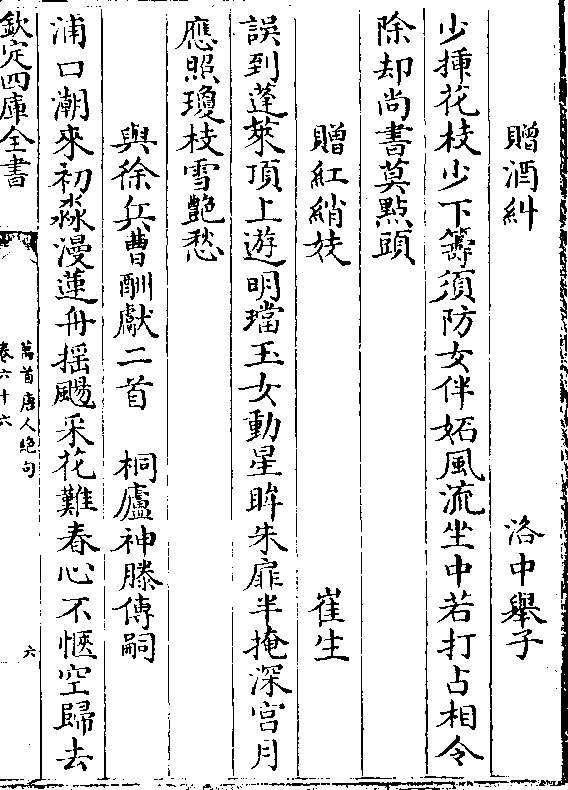 贈酒糾　洛中舉子
少揷花枝少下籌須防女伴妬風流坐中若打占相令
除却尚書莫點頭
贈紅綃妓　崔生
誤到蓬萊頂上遊明璫玉女動星眸朱扉半掩深宫月
應照瓊枝雪艶愁
與徐兵曹酬獻二首　桐廬神滕傳嗣
浦口潮來初淼漫蓮舟揺颺采花難春心不愜空歸去
欽定四庫全書
萬首唐人絶句
卷六十六
六